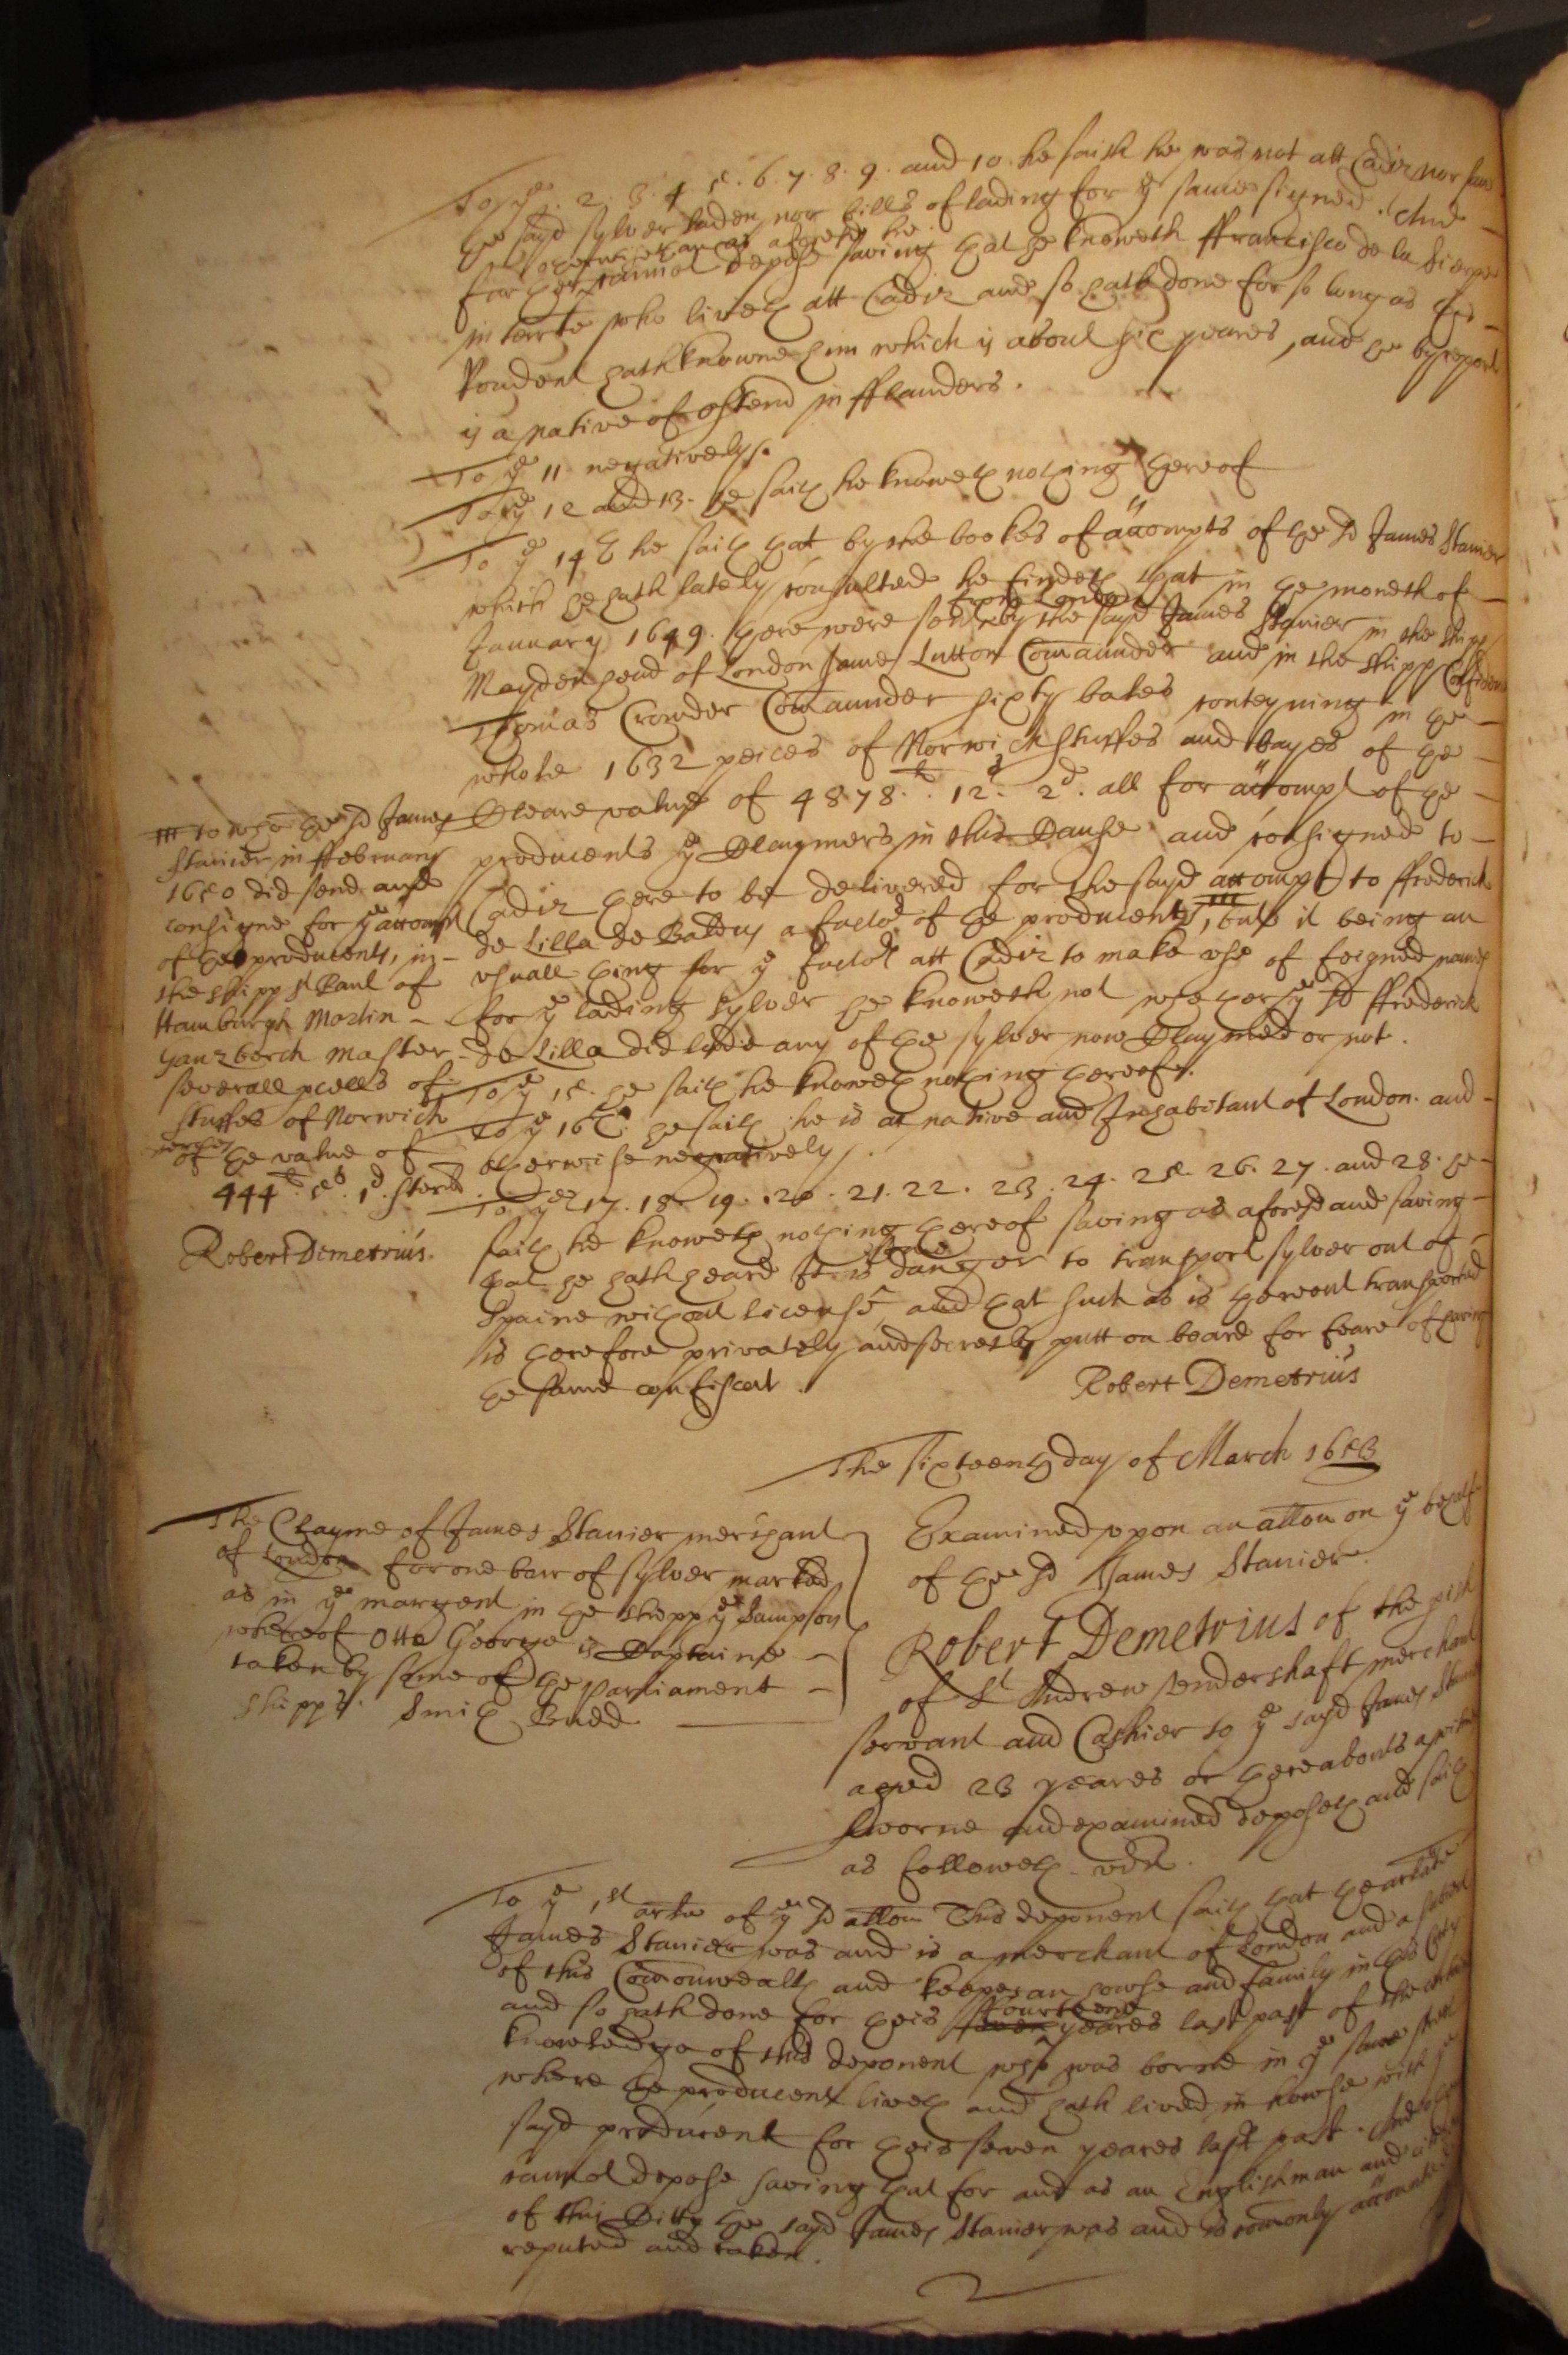 To ye. 2. 3. 4. 5. 6. 7. 8. 9. and 10. he saith he was not att Cadiz nor saw
the sayd sylver laden, nor bills of lading for ye same signed. And
otherwise than as aforesd he
further cannot depose saving that he knoweth ffrancisco de la Sierpe
interrte who liveth att Cadiz and so hath done for so long as this
Rondent hath knowne him which is about six yeares, and he by report
is a native of Ostend in fflanders.
To ye 11 negatively.
To ye 12 and 13. he saith he knoweth nothing thereof
To ye 14th he saith that by the bookes of accompts of the sd James Stanier
which he hath lately consulted he findeth that in the moneth of
from London
January 1649. there were sent by the sayd James Stanier in the shipp
Maydenhead of London James Lutton Comaunder and in the shipp
Thomas Crowder Comaunder sixty bales conteyning in the
whole 1632 peices of Norwich stuffes and bayes of the
cleare value of 4878li. 12s. 2d. all for accompt of the
producents ye Claymers in this Cause and consigned to
Cadiz there to be delivered for the sayd accompt to ffrederick
de Lilla de Baldus a factor of the producents, but it being an
usuall thing for ye factors att Cadiz to make use of feigned names
for ye lading sylver he knoweth not whether ye sd ffrederick
de Lilla did lade any of the sylver now Claymed or not.
To ye 15. he saith he knoweth nothing thereof.
To ye 16th. he saith he is a native and Inhabitant of London. and
otherwise negatively.
To ye 17. 18. 19. 20. 21. 22. 23. 24. 25. 26. 27. and 28. he
saith he knoweth nothing thereof saving as aforesd and saving
some
that he hath heard It is danger to transport sylver out of
Spaine without license, and that such as is thereout transported
is therefore privately and secretly putt on board for feare of having
the same confiscat.
Robert Demetrius
to whom the sd James
Stanier in ffebruary
1650 did send and
consigne for ye accompt
of the producents, in
the shipp St Paul of
Hamburgh Martin
Ganzberch master
severall pcells of
stuffes of Norwich
serges
of the value of
444li. 5s. 1d. sterl
Robert Demetrius.
The sixteenth day of March 1653
The Clayme of James Stanier merchant
of London for one barr of sylver marked
as in ye margent in the shipp ye Sampson
whereof Otto George is Captaine
taken by some of the Parliament
shipps. Smith Budd
Examined upon an allon on ye behalfe
of the sd James Stanier.
Robert Demetrius of the pish
of St Andrew undershaft merchant
servant and Cashier to ye sayd James Stanier
aged 23 yeares or thereabouts a witnes
sworne and examined deposeth and saith
as followeth. vizt.
To ye 1st arle of ye sd allon This deponent saith that the arlate
James Stanier was and is a merchant of London and a subject
of this Comonwealth and keepes an howse and family in this Citty
fourteene
and so hath done for theis seven yeares last past of the certaine
knowledge of this deponent who was borne in ye same streete
where the producent liveth and hath lived in howse with ye
sayd producent for theis seven yeares last past. And otherwise
cannot depose saving that for and as an Englishman and
of this Citty the sayd James Stanier was and is comonly accounted
reputed and taken.
2